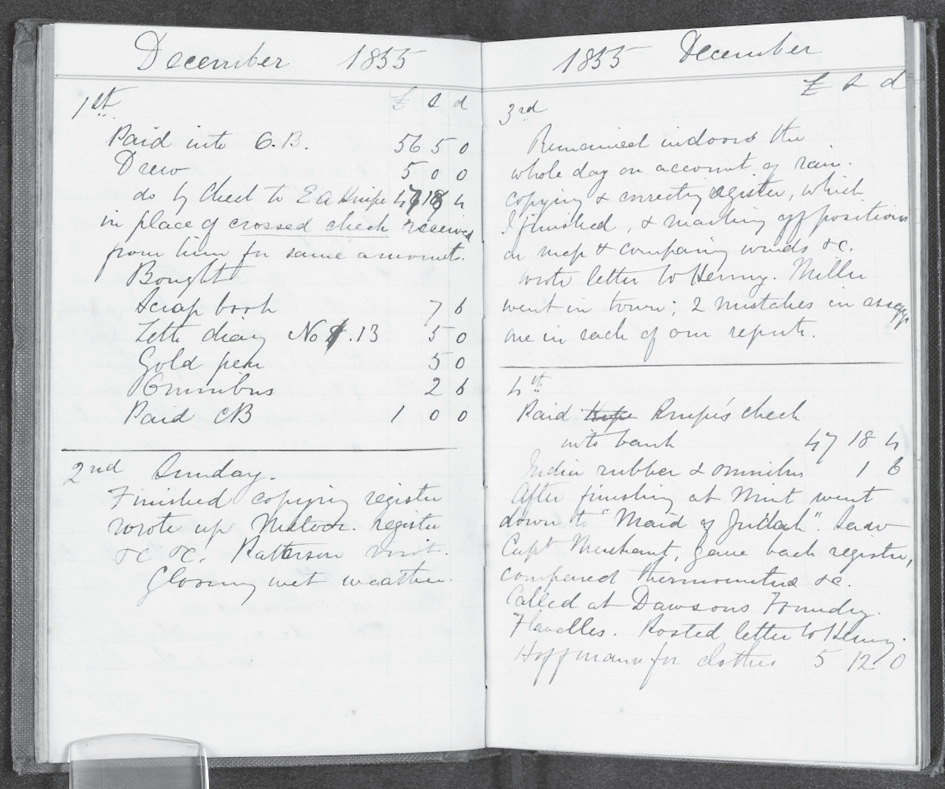 December 1855
£ s d
1st
Paid into C.B. 56 5 0
Drew 5 0 0
do by Check to E a Knipe 47 18 4
in place of crossed check received
from him for same amount.
Bought
Scrap book 7 6
Letts diary No 13 5 0
Gold pen 5 0
Omnibus 2 6
Paid CB 1 0 0
2nd Sunday.
Finished copying register
wrote up Meteor. register
&c &c. Patterson visit.
Gloomy wet weather.
1855 December
£ s d
3rd
Remained indoors the
whole day on account of rain.
copying & correctg register, which
I finished, & marking off positions
on map & comparing winds &c.
wrote letter to Henry. Miller
went in town; 2 mistakes in assays
one in each of our reports.
4th
Paid Knipe's check
into bank 47 18 4
India rubber & omnibus 1 6
After finishing at Mint went
down to "Maid of Judah". Saw
Capt Merchant, gave back register,
compared thermometers &c.
Called at Dawsons Foundry.
Flavelles. Posted letter to Henry.
Hoffmann for clothes 5 12 0